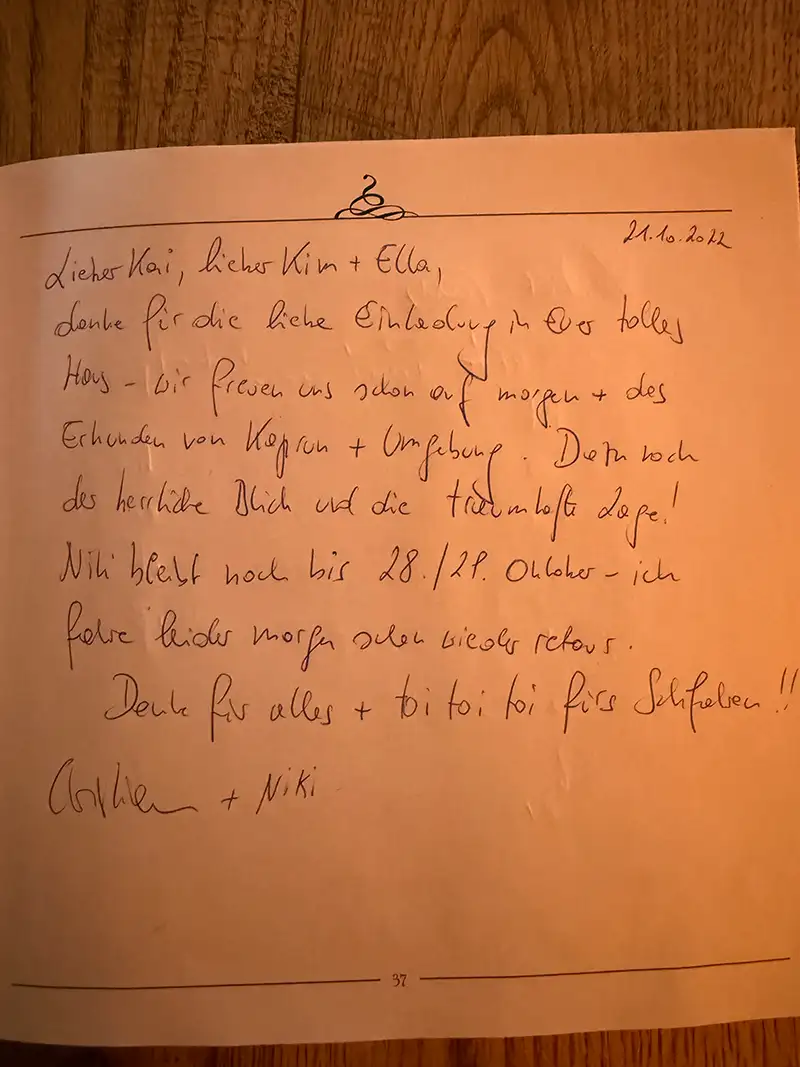 21.10.2022
Lieber Kai, lieber Kim + Ella,
danke für die liebe Einladung in Euer tolles
Haus - wir freuen uns schon auf morgen + das
Erkunden von Kaprun + Umgebung. Dazu noch
der herrliche Blick und die traumhafte Lage!
Niki bleibt noch bis 28./29. Oktober - ich
fahre leider morgen schon wieder retour.
Danke für alles + toi toi toi fürs Schifahren!!
+ Niki
37